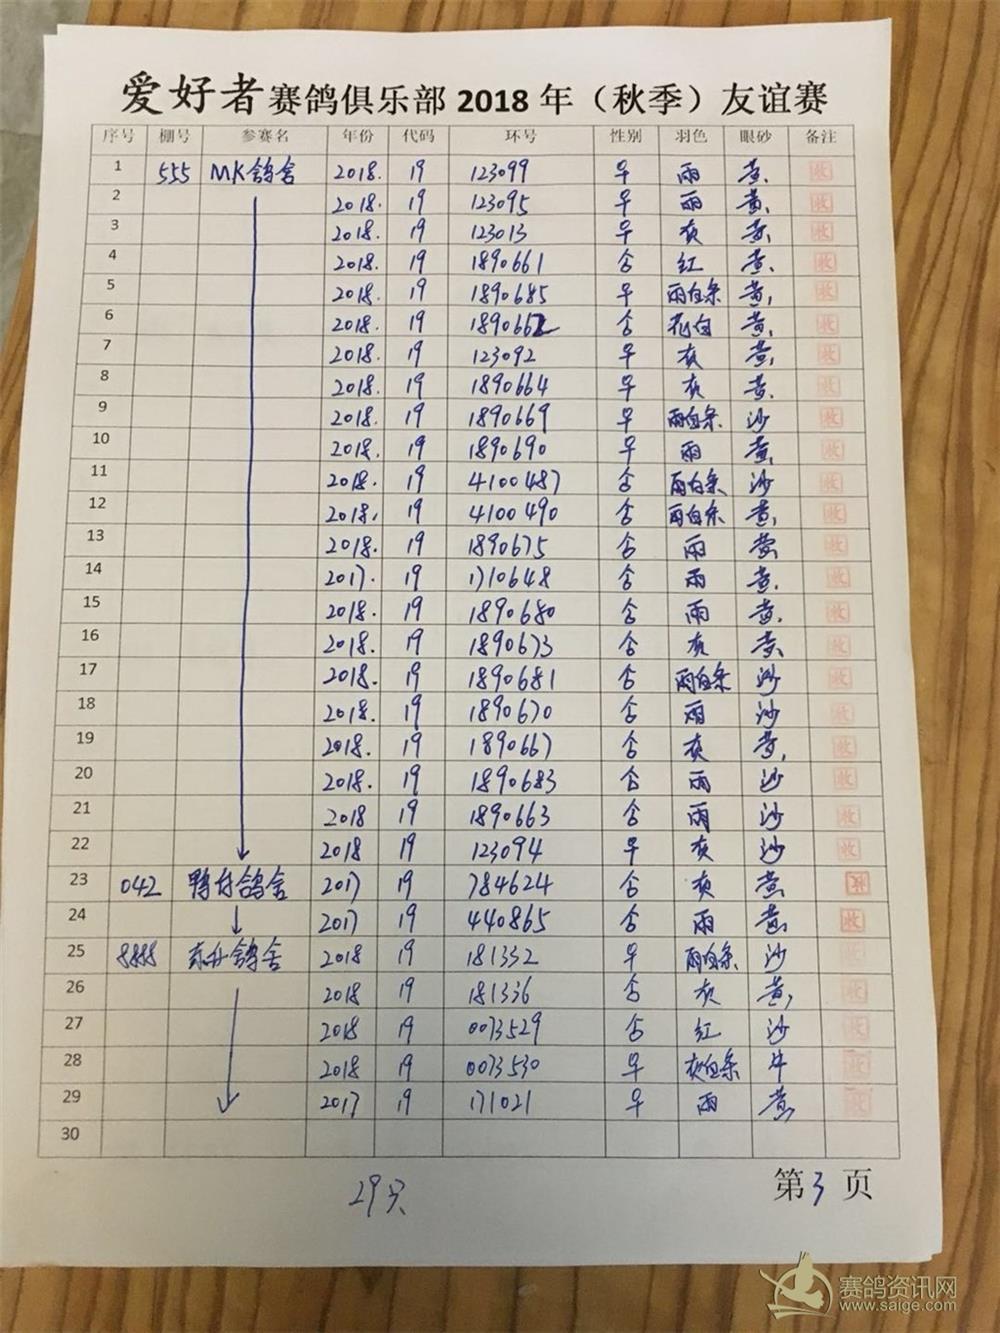 爱好者赛鸽俱乐部 2018 年（秋季）友谊赛
序号 棚号 参赛名 年份 代码 环号 性别 羽色 眼砂 备注
1 555 MK鸽舍 2018. 19 123099 早 雨 黄. 收
2 2018. 19 123095 早 雨 黄. 收
3 2018. 19 123013 早 灰 黄. 收
4 2018. 19 1890661 合 红 黄. 收
5 2018. 19 1890685 早 雨白条 黄. 收
6 2018. 19 1890662 合 花白 黄. 收
7 2018. 19 123092 早 灰 黄. 收
8 2018. 19 1890664 早 灰 黄. 收
9 2018. 19 1890669 早 雨白条 沙 收
10 2018. 19 1890690 早 雨 黄. 收
11 2018. 19 4100487 合 雨白条 沙 收
12 2018. 19 4100490 合 雨白条 黄. 收
13 2018. 19 1890675 合 雨 黄 收
14 2017. 19 1710648 合 雨 黄. 收
15 2018. 19 1890680 合 雨 黄. 收
16 2018. 19 1890673 合 灰 黄. 收
17 2018. 19 1890681 合 雨白条 沙 收
18 2018. 19 1890670 合 雨 沙 收
19 2018. 19 1890667 合 灰 黄. 收
20 2018. 19 1890683 合 雨 沙 收
21 2018 19 1890663 合 雨 沙 收
22 2018 19 123094 早 灰 沙 收
23 042 鸭仔鸽舍 2017 19 784624 合 灰 黄 收
24 2017 19 440865 合 雨 黄. 收
25 8888 东升鸽舍 2018 19 181332 早 雨白条 沙 收
26 2018 19 181336 合 灰 黄, 收
27 2018 19 0073529 合 红 沙 收
28 2018 19 0073530 早 灰白条 牛 收
29 2017 19 171021 早 雨 黄, 收
30
29只
第3页
赛鸽资讯网
www.saige.com